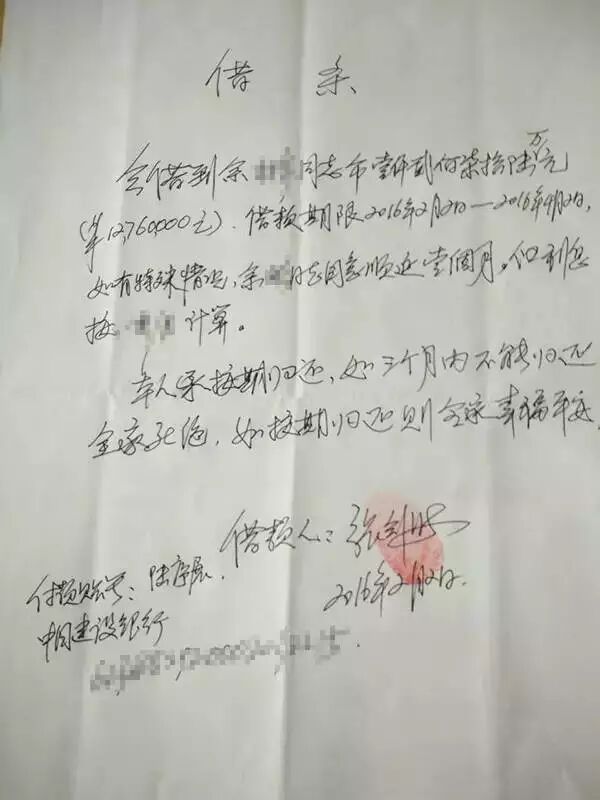 借条
今借到余 同志币壹仟贰佰柒拾陆万元
(¥12,760,000元).借款期限2016年2月2日—2016年4月2日,
如有特殊情况,余 同志同意顺延壹個月,但利息
按 计算。
本人承按期归还,如三个月内不能归还
全家死绝,如按期归还则全家幸福平安
借款人:张
2016年2月2日.
付款账号:陆
中国建设银行